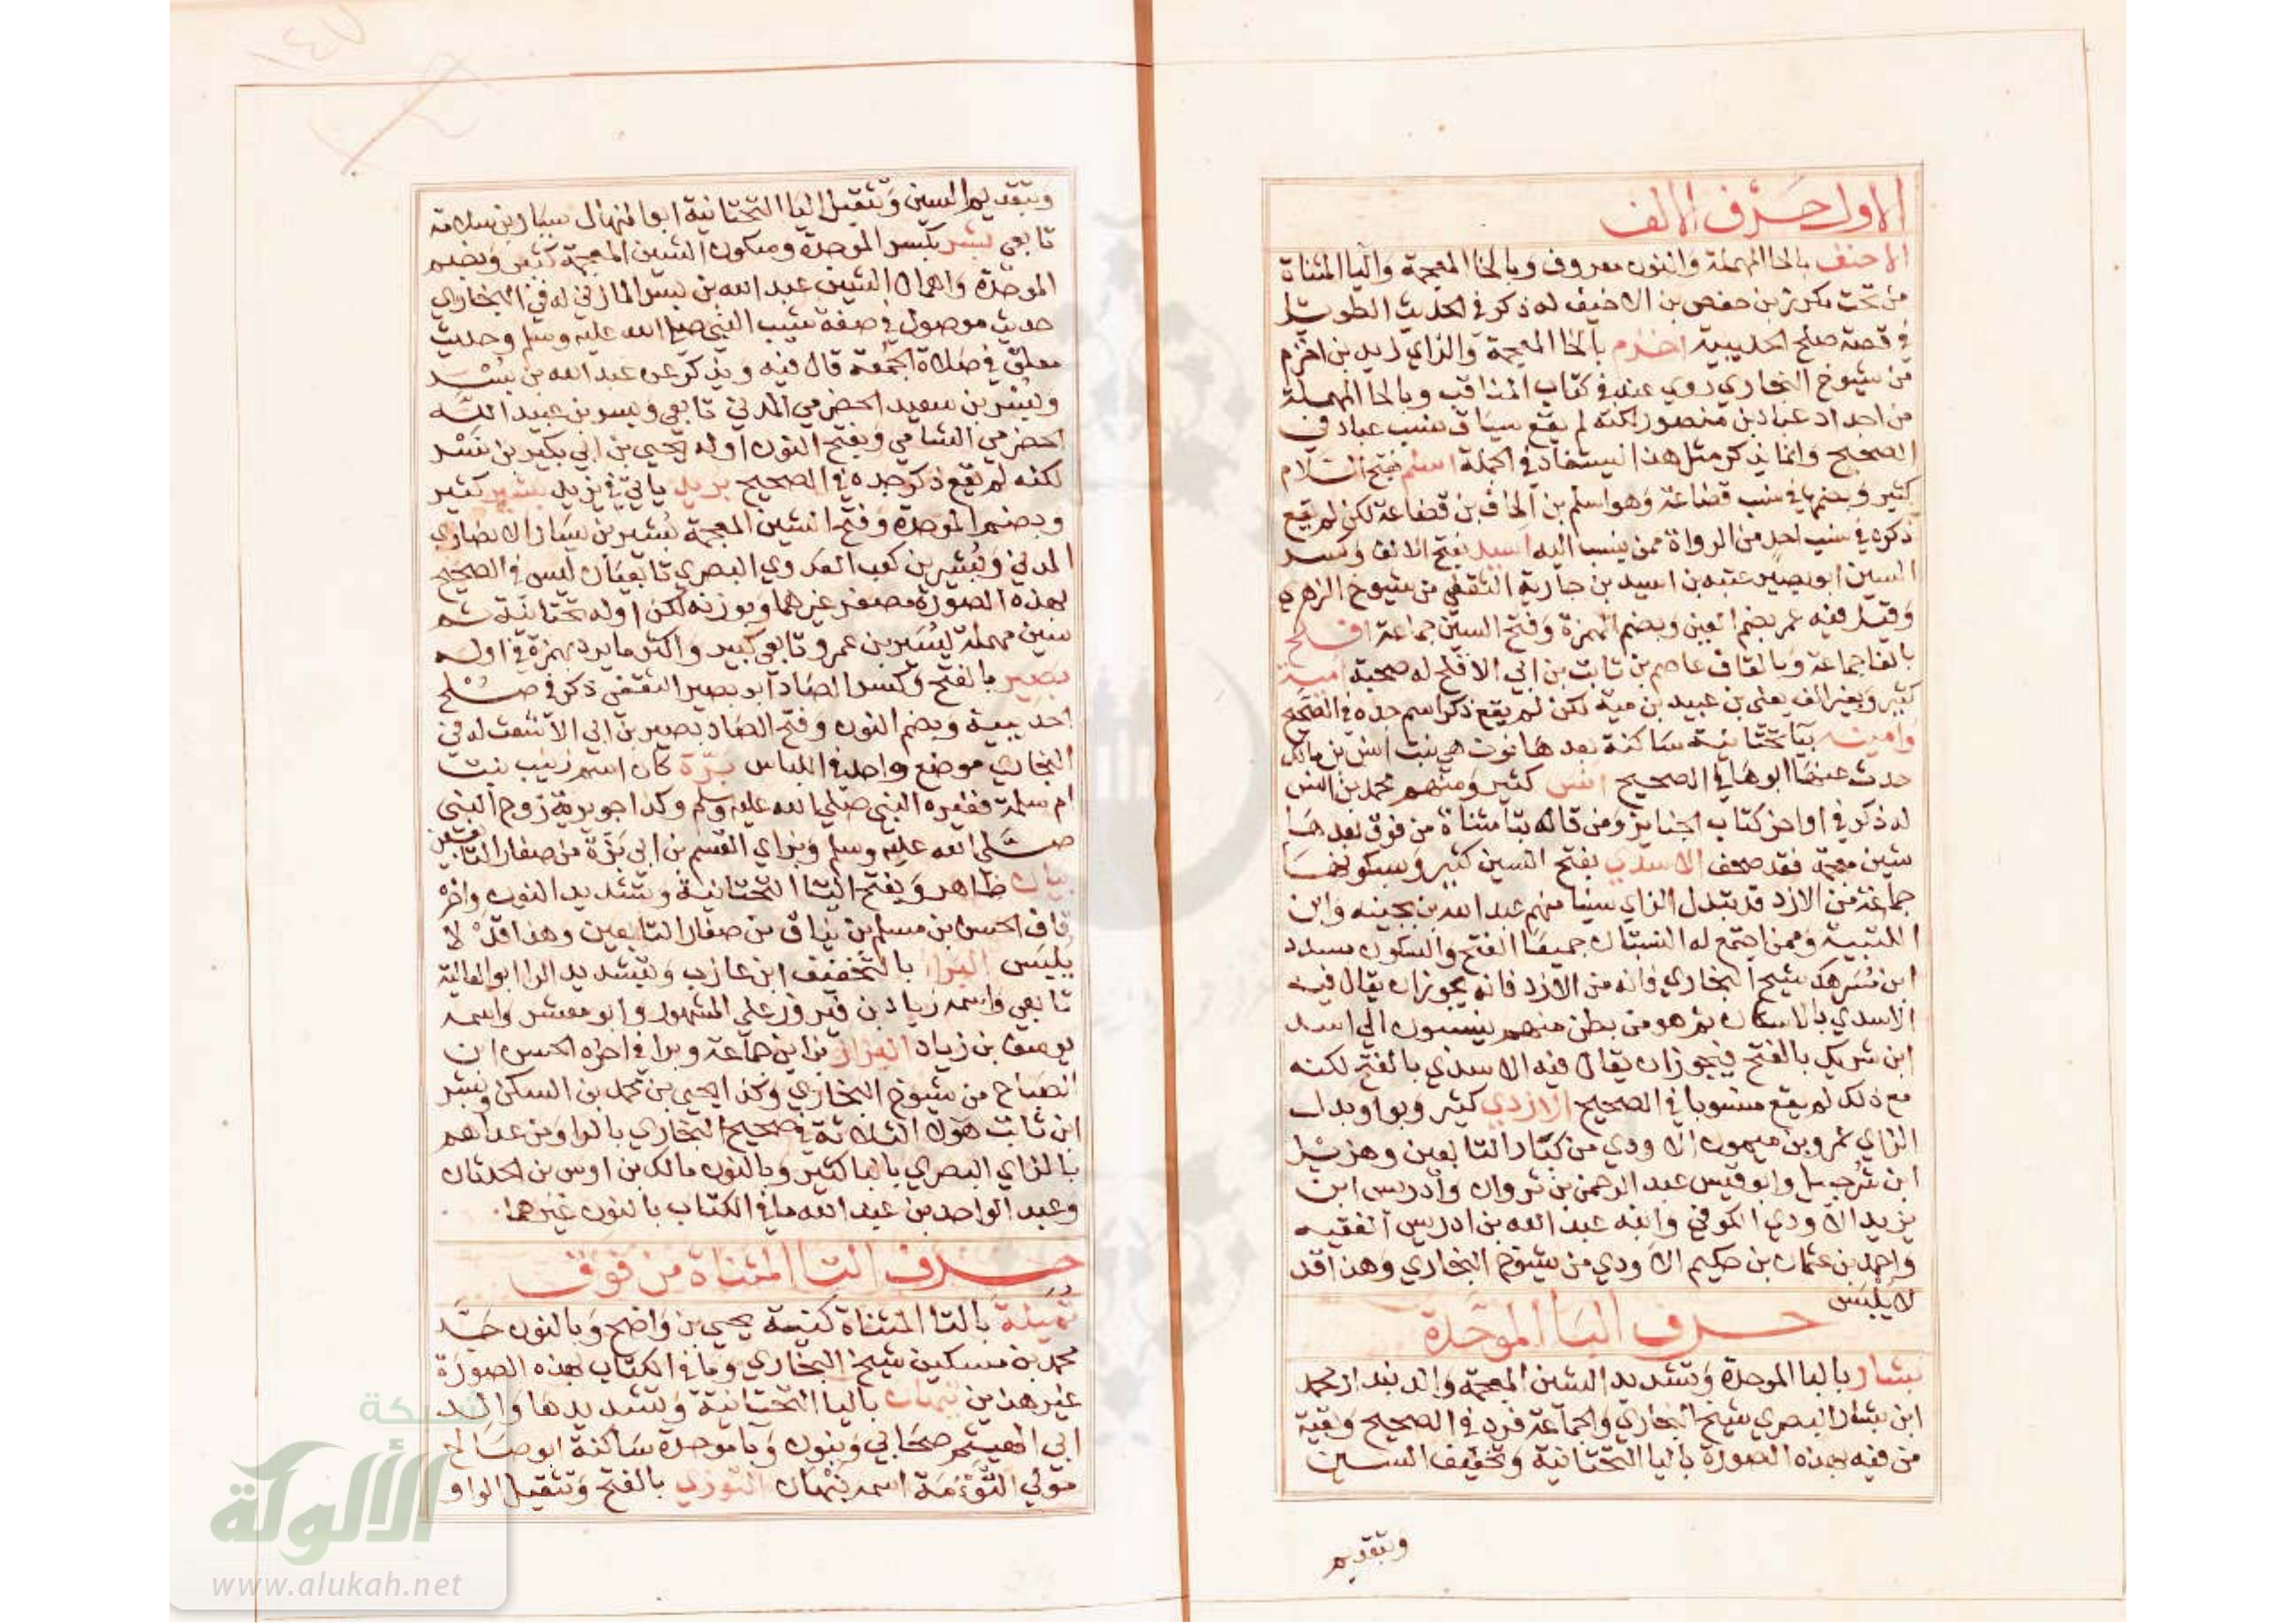 الاول حرف الالف
الاحنف بالحا المهملة والنون معروف وبالخا المعجمة واليا المثناة
من تحت مكرز بن حفص بن الاخيف له ذكر في الحديث الطويل
في قصة صلح الحديبية اخزم بالخا المعجمة والزاي زيد بن اخزم
من شيوخ البخاري روي عنه في كتاب المناقب وبالحا المهملة
من اجداد عباد بن منصور لكنه لم يقع سياق نسب عباد في
الصحيح وانما يذكر مثل هذا ليستفاد في الجملة اسلم بفتح اللام
كثير وبضمها في نسب قضاعة وهو اسلم بن الحاف بن قضاعة لكن لم يقع
ذكره في نسب احد من الرواة ممن ينسب اليه اسيد بفتح الالف وكسر
السين ابو بصير عتبه بن اسيد بن جارية الثقفي من شيوخ الزهري
وقيل فيه عمر بضم العين وبضم الهمزة وفتح السين جماعة افلح
بالفا جماعة وبالقاف عاصم بن ثابت بن ابي الاقلح له صحبة امية
كثير وبغير الف يعلى بن عبيد بن مية لكن لم يقع ذكر اسم جده في الصحيح
وامينه بيا تحتانية ساكنة بعدها نون هي بنت انس بن مالك
حدث عنها ابوها في الصحيح انس كثير ومنهم محمد بن انس
له ذكر في اواخر كتاب الجنايز ومن قاله بتا مثناة من فوق بعدها
شين معجمة فقد صحف الاسدي بفتح السين كثير وبسكونها
جماعة من الازد قد تبدل الزاي سينا منهم عبد الله بن بحينه وابن
اللتبية وممن اجتمع له النسبتان جميعا الفتح والسكون مسدد
ابن مسرهد شيخ البخاري فانه من الازد فانه يجوز ان يقال فيه
الاسدي بالاسكان ثم هو من بطن منهم ينسبون الي اسد
ابن شريك بالفتح فيجوز ان يقال فيه الاسدي بالفتح لكنه
مع ذلك لم يقع منسوبا في الصحيح الازدي كثير وبواو بدل
الزاي عمرو بن ميمون الاودي من كبار التابعين وهزيل
ابن شرحبيل وابو قيس عبد الرحمن بن ثروان وادريس ابن
يزيد الاودي الكوفي وابنه عبد الله بن ادريس الفقيه
واحمد بن عثمان بن حكيم الاودي من شيوخ البخاري وهذا قد
لا يلبس
حرف البا الموحدة
بشار بالبا الموحدة وتشديد الشين المعجمة والد بندار محمد
ابن بشار البصري شيخ البخاري والجماعة فرد في الصحيح وبقية
من فيه بهذه الصورة باليا التحتانية وتخفيف السين
وبتقديم
وبتقديم السين وتثقيل اليا التحتانية ابو المنهال سيار بن سلامة
تابعي بشر بكسر الموحدة وسكون الشين المعجمة كثير وبضم
الموحدة واهمال الشين عبد الله بن بسر المازني له في البخاري
حديث موصول في صفة شيب النبي صلي الله عليه وسلم وحديث
معلق في صلاة الجمعة قال فيه ويذكر عن عبد الله بن بسر
وبسر بن سعيد الحضرمي المدني تابعي وبسر بن عبيد الله
الحضرمي الشامي وبفتح النون اوله يحيي بن ابي بكير بن نسر
لكنه لم يقع ذكر جده في الصحيح بريد ياتي في يزيد بشير كثير
وبضم الموحدة وفتح الشين المعجمة بشير بن يسار الانصاري
المدني وبشير بن كعب العدوي البصري تابعيان ليس في الصحيح
بهذه الصورة مصغر غيرهما وبوزنه لكن اوله تحتانية ثم
سين مهملة يسير بن عمرو تابعي كبير واكثر ما يرد بهمزة في اوله
بصير بالفتح وكسر الصاد ابو بصير الثقفي ذكر في صلح
الحديبية وبضم النون وفتح الصاد نصير بن ابي الاشعث له في
البخاري موضع واحد في اللباس برة كان اسم زينب بنت
ام سلمة فغيره النبي صلي الله عليه وسلم وكذا جويرية زوج النبي
صلي الله عليه وسلم وبزاي القسم بن ابي بزة من صغار التابعين
بيان ظاهر وبفتح اليا التحتانية وتشديد النون واخره
قاف الحسن بن مسلم بن يناق من صغار التابعين وهذا قد لا
يلبس البرا بالتخفيف ابن عازب وتشديد الرا ابو العالية
تابعي واسمه زياد بن فيروز علي المشهور وابو معشر واسمه
يوسف بن زياد البزاز بزاين جماعة وبرا في اخره الحسن ابن
الصباح من شيوخ البخاري وكذا يحيي بن محمد بن السكن وبشر
ابن ثابت هولا الثلاثة في صحيح البخاري بالرا ومن عداهم
بالزاي البصري بالبا كثير وبالنون مالك بن اوس بن الحدثان
وعبد الواحد بن عبد الله ما في الكتاب بالنون غيرهما
حرف التا المثناة من فوق
تميلة بالتا المثناة كنية يحيي بن واضح وبالنون جد
محمد بن مسكين شيخ البخاري وما في الكتاب بهذه الصورة
غير هذين تيهان باليا التحتانية وتشديدها والد
ابي الهيثم صحابي وبنون وبا موحدة ساكنة ابو صالح
مولي التوءمة اسمه نبهان التوزي بالفتح وتثقيل الواو
شبكة
الألوكة
www.alukah.net